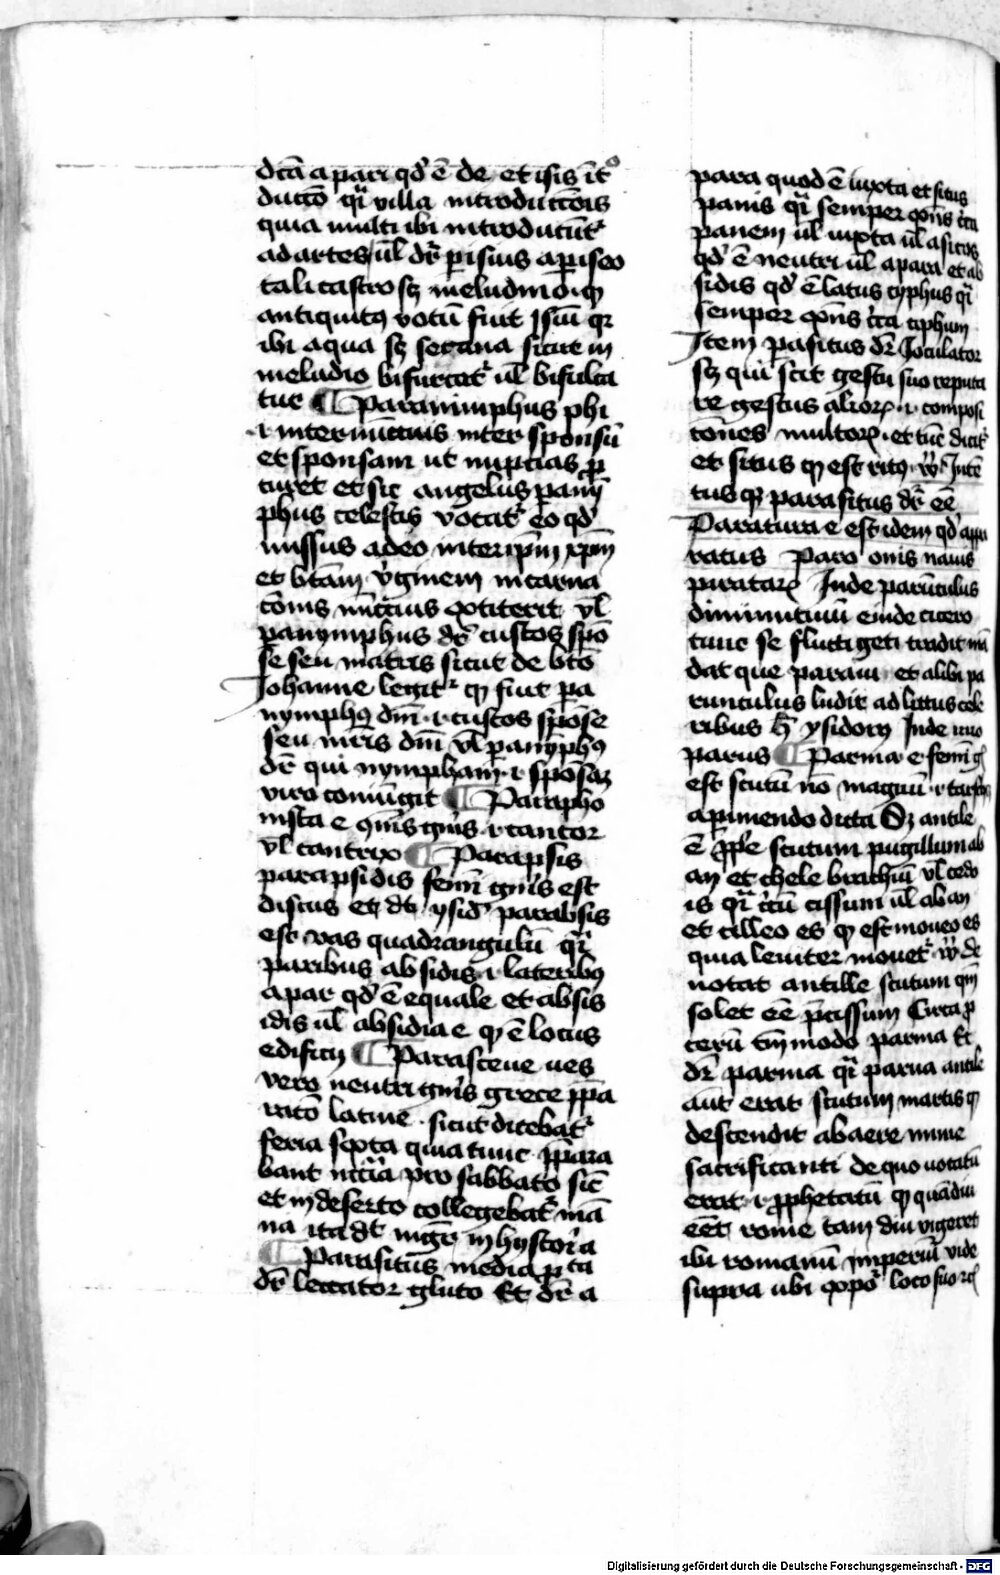 dcta a pari qd' ē de et isis īt°
ductō qr̄ villa introductōis
quia multi ibi introducūt᷑
ad artes ul̄ dr̄ pisius a piseo
tali castro sꝫ
antiquitꝰ votū fuit qꝛ
ibi aqua sꝫ secana sicut in
meludio bifurcat᷑ ul̄ bifulca
tur ¶ Paranimphus phi
.i. internūccius inter sponsū
et sponsam ut nupcias ꝓ
curet et sic angelus panȳ
phus celestis vocat᷑ eo qd'
missus a deo inter ip̄m xp̄m
et btām v̓ginem incarna
cōnis nūccius extiterit vl̄
panymphus dr̄ custos spō
se seu matris sicut de btō
Johanne legit᷑ ꝙ fuit pa
nymphꝰ dn̄i .i. custos spōse
seu mr̄is dn̄i vl̄ panȳphꝰ
dr̄ qui nympham .i. sponsaꝫ
viro coniūgit ¶ Parapho
nista e 9mīs gn̄is .i. cantor
vl̄ cantrix ¶ Parapsis
parapsidis femī gn̄is est
discus et dt̄ ysid' parabsis
est vas quadrangulū qr̄
paribus absidis .i. lateribꝰ
a par qd' ē equale et absis
idis ul̄ absidia e ꝙ ē locus
edificij ¶ Parasceue ues
vero neutri gn̄is grece p̄pa
racō latine . sicut dicebat᷑
feria sexta quia tunc p̄para
bant nccīa pro sabbato sic̄
et in deserto collegebāt᷑ mā
na ita dt̄ mgr̄ in hystoria
¶ Parasitus media ꝓcta
dr̄ leccator gluto Et dr̄ a
para quod ē iuxta et situs
panis qr̄ semper 9n̄s cīca
panem ul̄ iuxta ul̄ a sitos
qd' ē neutri ul̄ a para et ab
sidis qd' ē latus cyphus qr̄
semper 9n̄s cīca ciphum
Item pasitus dr̄ Joculator
sꝫ qui scit gestu suo reputa
re gestus alioꝝ .i. composi
cōnes multoꝝ . et tūc dicit᷑
et situs ꝙ est
tus qꝫ parasitus dr̄ eē
Paratura e est idem qd' appa
ratus Paro onis nauis
pirataꝝ Inde parūculus
diminutiuū
tunc se fluctigeti tradit mā
dat que paraui et alibi pa
runculus ludit ad littus cele
ribus h̄ ysidorꝰ Inde mio
parus ¶ Parma e femī gn̄
est scutū nō magnū .i. targa
a pimendo dicta Sꝫ ancile
ē ꝓpe scutum pugillum ab
an et chele brachiū vl̄ cedo
is qr̄ cīcū cissum ul̄ ab an
et cilleo es ꝙ est moueo es
quia leuiter mouet᷑ de
notat ancille scutum qm̄
solet eē p̄cissum Circa p
cerū tm̄modo parma Et
dr̄ parma qr̄ parua ancile
aut erat scutum martis ꝙ
descendit ab aere nume
sacrificanti de quo uocatū
erat .i. ꝓphetatū ꝙ quādiu
eēt rome tam diu vigeret
ibi romanū imperiū vide
supra ubi exposʳ loco suo
Digitalisierung gefördert durch die Deutsche Forschungsgemeinschaft - DFG